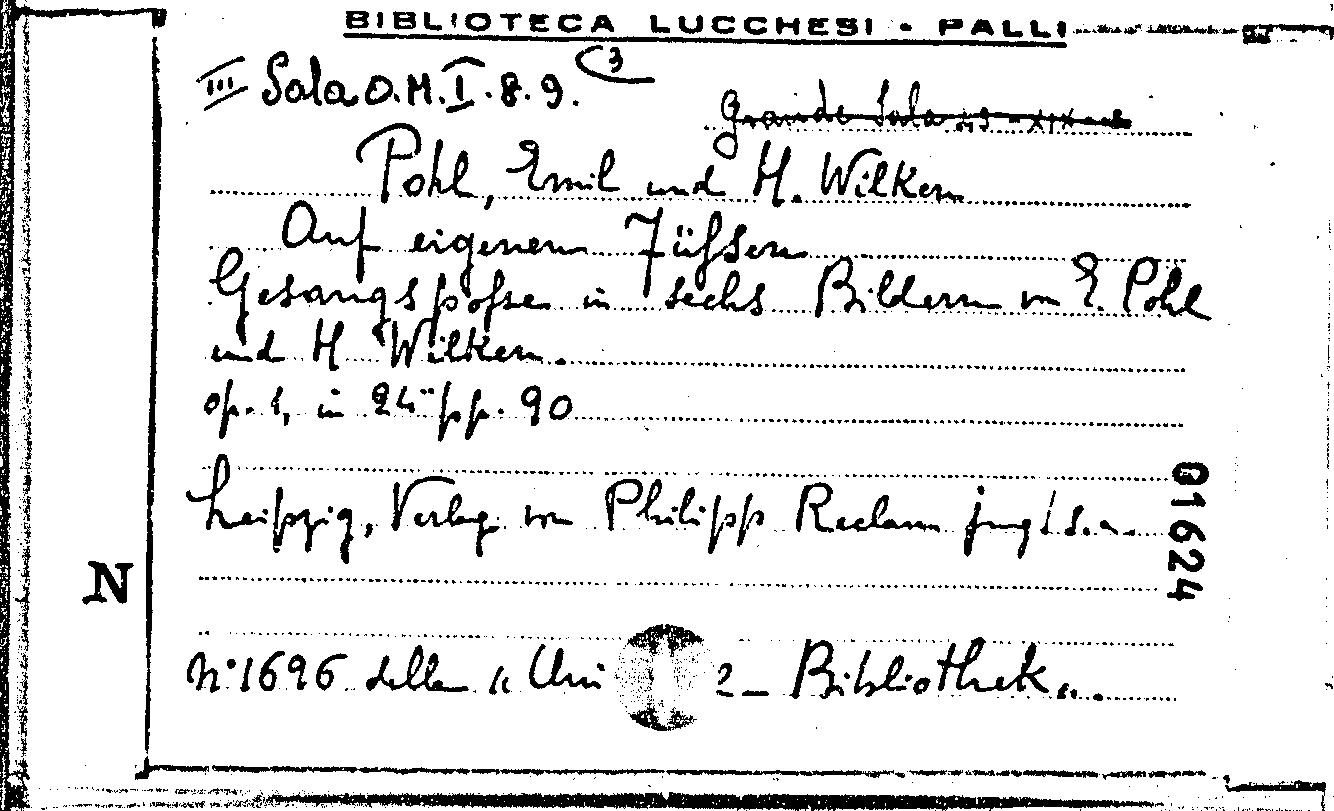 BIBLIOTECA LUCCHESI - PALLI
III Sala O.M.I.8.9.(3
Grande Sala
Pohl, Emil und H. Wilken
Auf eigenen Füfsen
Gesangspofse in sechs Bildern von E. Pohl
und H. Wilken.
op. 1, in 24° pp. 90
Leipzig, Verlag von Philipp Reclam jung! s.a.
01624
N
N° 1696 della "Uni - Bibliothek".